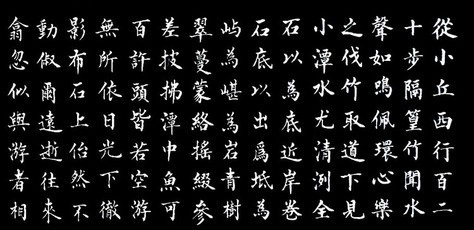 從小丘西行百二
十步隔篁竹聞水
聲如鳴佩環心樂
之伐竹取道下見
小潭水尤清洌全
石以為底近岸卷
石底以出爲坻為
屿為嵁為岩青樹
翠蔓蒙絡搖綴參
差披拂潭中魚可
百許頭皆若空游
無所依日光下徹
影布石上佁然不
動俶爾遠逝往來
翕忽似與游者相